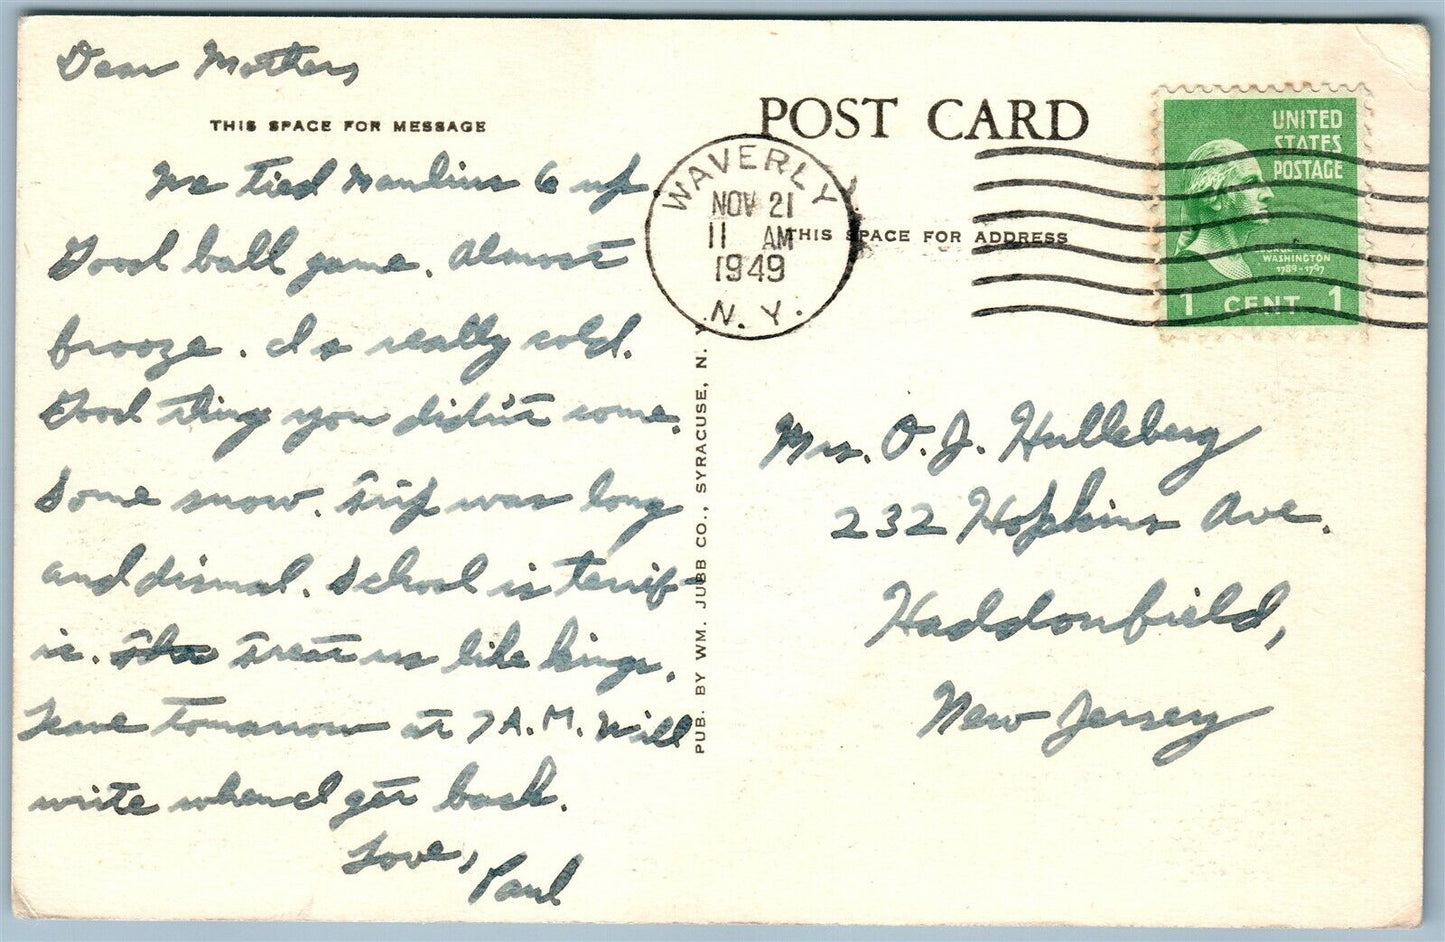 Dear Mother,
THIS SPACE FOR MESSAGE
We tied Mansfield 6 up.
Good ball game. Almost
frooze. Is really cold.
Good thing you didn't come.
Some snow. Trip was long
and dismal. School is terrif-
ic. The treat us like kings.
Leave tomorrow at 7 A.M. Will
write when I get back.
Love,
Paul
PUB. BY WM. JUBB CO., SYRACUSE, N. Y.
POST CARD
THIS SPACE FOR ADDRESS
WAVERLY
NOV 21
11 AM
1949
N. Y.
UNITED
STATES
POSTAGE
WASHINGTON
1789-1797
1 CENT 1
Mrs. O. J. Hulleberg
232 Hopkins Ave.
Haddonfield,
New Jersey